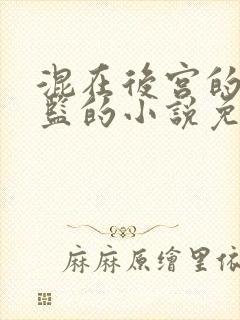 混在後宮的
監的小說免
麻麻原繪里依